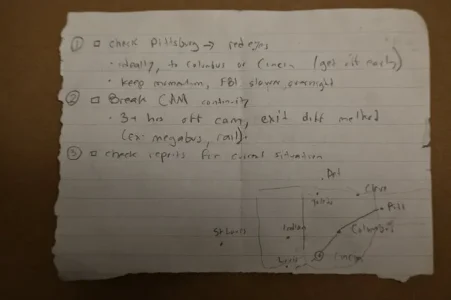 ① □ check Pittsburg → redeyes
• ideally, to Columbus or Cincin (get off early)
• keep momentum, FBI slower overnight
② □ Break CAM continuity
• 3+ hrs off cam, exit diff method
(Ex: megabus, rail).
③ □ check reports for current situation
Det
Cleve
Pitt
Columbus
St Louis
Indian
Cincin